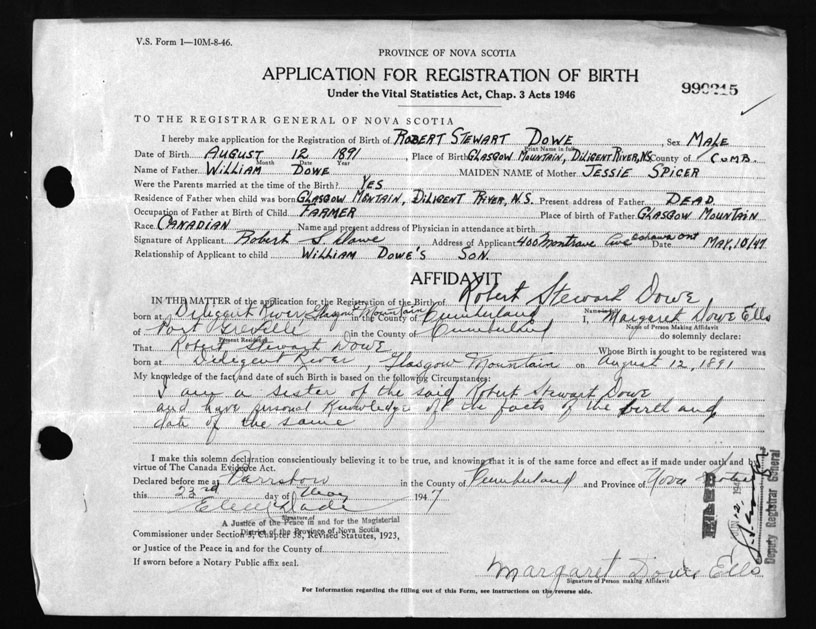 V.S. Form 1—10M-8-46.
PROVINCE OF NOVA SCOTIA
APPLICATION FOR REGISTRATION OF BIRTH
Under the Vital Statistics Act, Chap. 3 Acts 1946
990215
TO THE REGISTRAR GENERAL OF NOVA SCOTIA
I hereby make application for the Registration of Birth of ROBERT STEWART DOWE, Sex MALE
Print Name in full
Date of Birth AUGUST 12 1891, Place of Birth GLASGOW MOUNTAIN, DILIGENT RIVER, NS County of CUMB.
Month Date Year
Name of Father WILLIAM DOWE MAIDEN NAME of Mother JESSIE SPICER
Were the Parents married at the time of the Birth? YES
Residence of Father when child was born GLASGOW MONTAIN, DILIGENT RIVER, N.S. Present address of Father DEAD.
Occupation of Father at Birth of Child FARMER Place of birth of Father GLASGOW MOUNTAIN
Race CANADIAN Name and present address of Physician in attendance at birth
Signature of Applicant Robert S. Dowe Address of Applicant 400 Montrave Ave Oshawa Ont Date MAY, 10/47
Relationship of Applicant to child WILLIAM DOWE'S SON.
AFFIDAVIT
IN THE MATTER of the application for the Registration of the Birth of Robert Steward Dowe
born at Diligent River, Glasgow Mountain in the County of Cumberland I, Margaret Dowe Ells
Name of Person Making Affidavit
of Port Greville in the County of Cumberland do solemnly declare:
Present Residence
That Robert Stewart Dowe Whose Birth is sought to be registered was
born at Diligent River, Glasgow Mountain on August 12, 1891
My knowledge of the fact and date of such Birth is based on the following Circumstances:
I am a sister of the said Robert Stewart Dowe
and have personal knowledge of the facts of the birth and
date of the same
I make this solemn declaration conscientiously believing it to be true, and knowing that it is of the same force and effect as if made under oath and by
virtue of The Canada Evidence Act.
Declared before me at Parrsboro in the County of Cumberland and Province of Nova Scotia
this 23rd day of May 1947
Signature of
A Justice of the Peace in and for the Magisterial
District of the Province of Nova Scotia
Commissioner under Section 3, Chapter 38, Revised Statutes, 1923,
or Justice of the Peace in and for the County of
If sworn before a Notary Public affix seal.
Margaret Dowe Ells
Signature of Person making Affidavit
For Information regarding the filling out of this Form, see instructions on the reverse side.
FILED
Deputy Registrar General